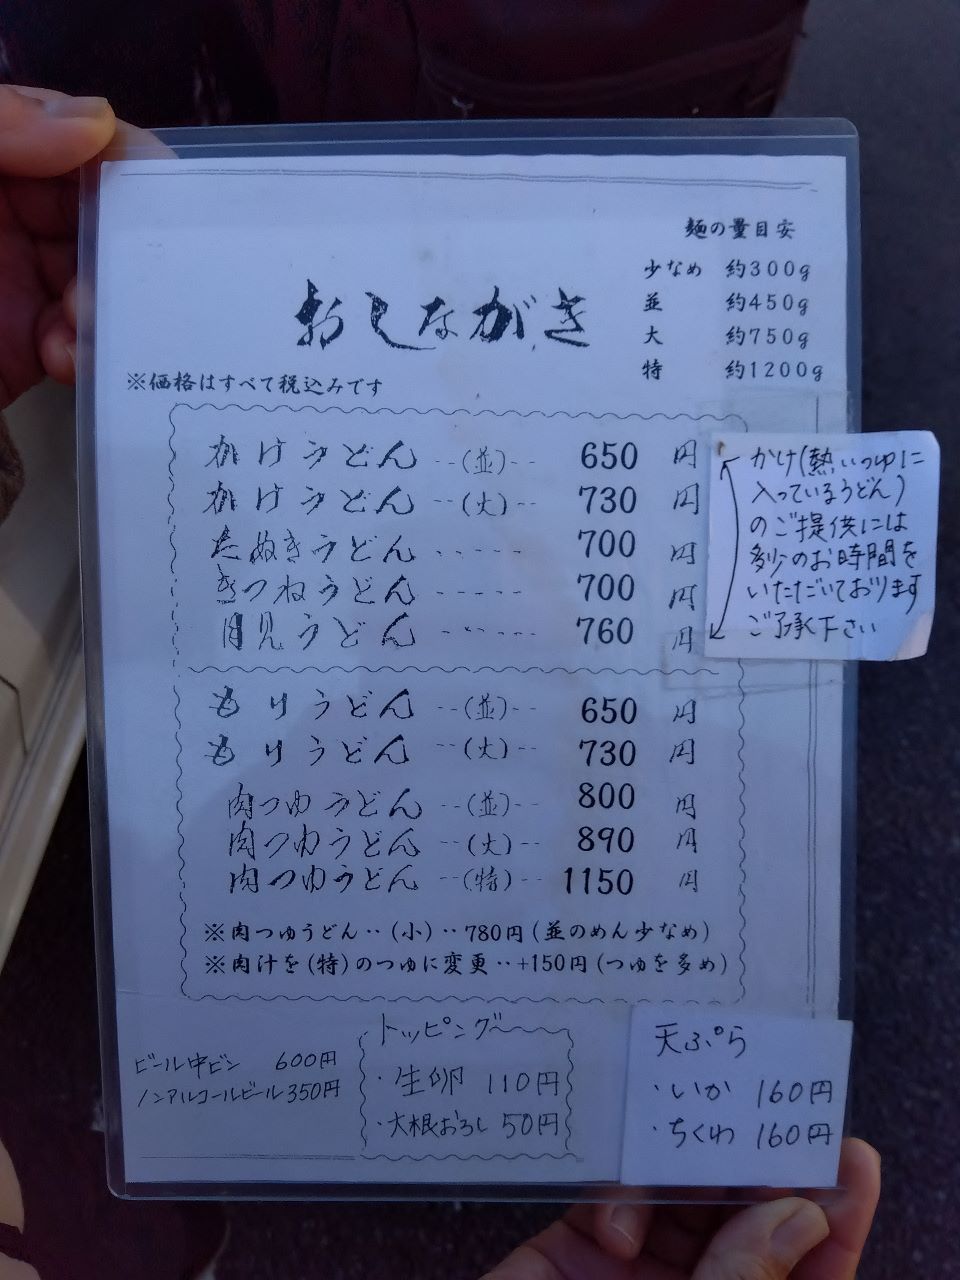 麺の量目安
少なめ 約300g
並 約450g
大 約750g
特 約1200g
おしながき
※価格はすべて税込みです
かけうどん --(並)-- 650 円
かけうどん --(大)-- 730 円
たぬきうどん ----- 700 円
きつねうどん ----- 700 円
月見うどん ------ 760 円
かけ(熱いつゆに
入っているうどん)
のご提供には
多少のお時間を
いただいております
ご了承下さい
もりうどん --(並)-- 650 円
もりうどん --(大)-- 730 円
肉つゆうどん --(並)-- 800 円
肉つゆうどん --(大)-- 890 円
肉つゆうどん --(特)-- 1150 円
※肉つゆうどん‥(小)‥780円(並のめん少なめ)
※肉汁を(特)のつゆに変更‥+150円(つゆを多め)
ビール中ビン 600円
ノンアルコールビール350円
トッピング
・生卵 110円
・大根おろし 50円
天ぷら
・いか 160円
・ちくわ 160円